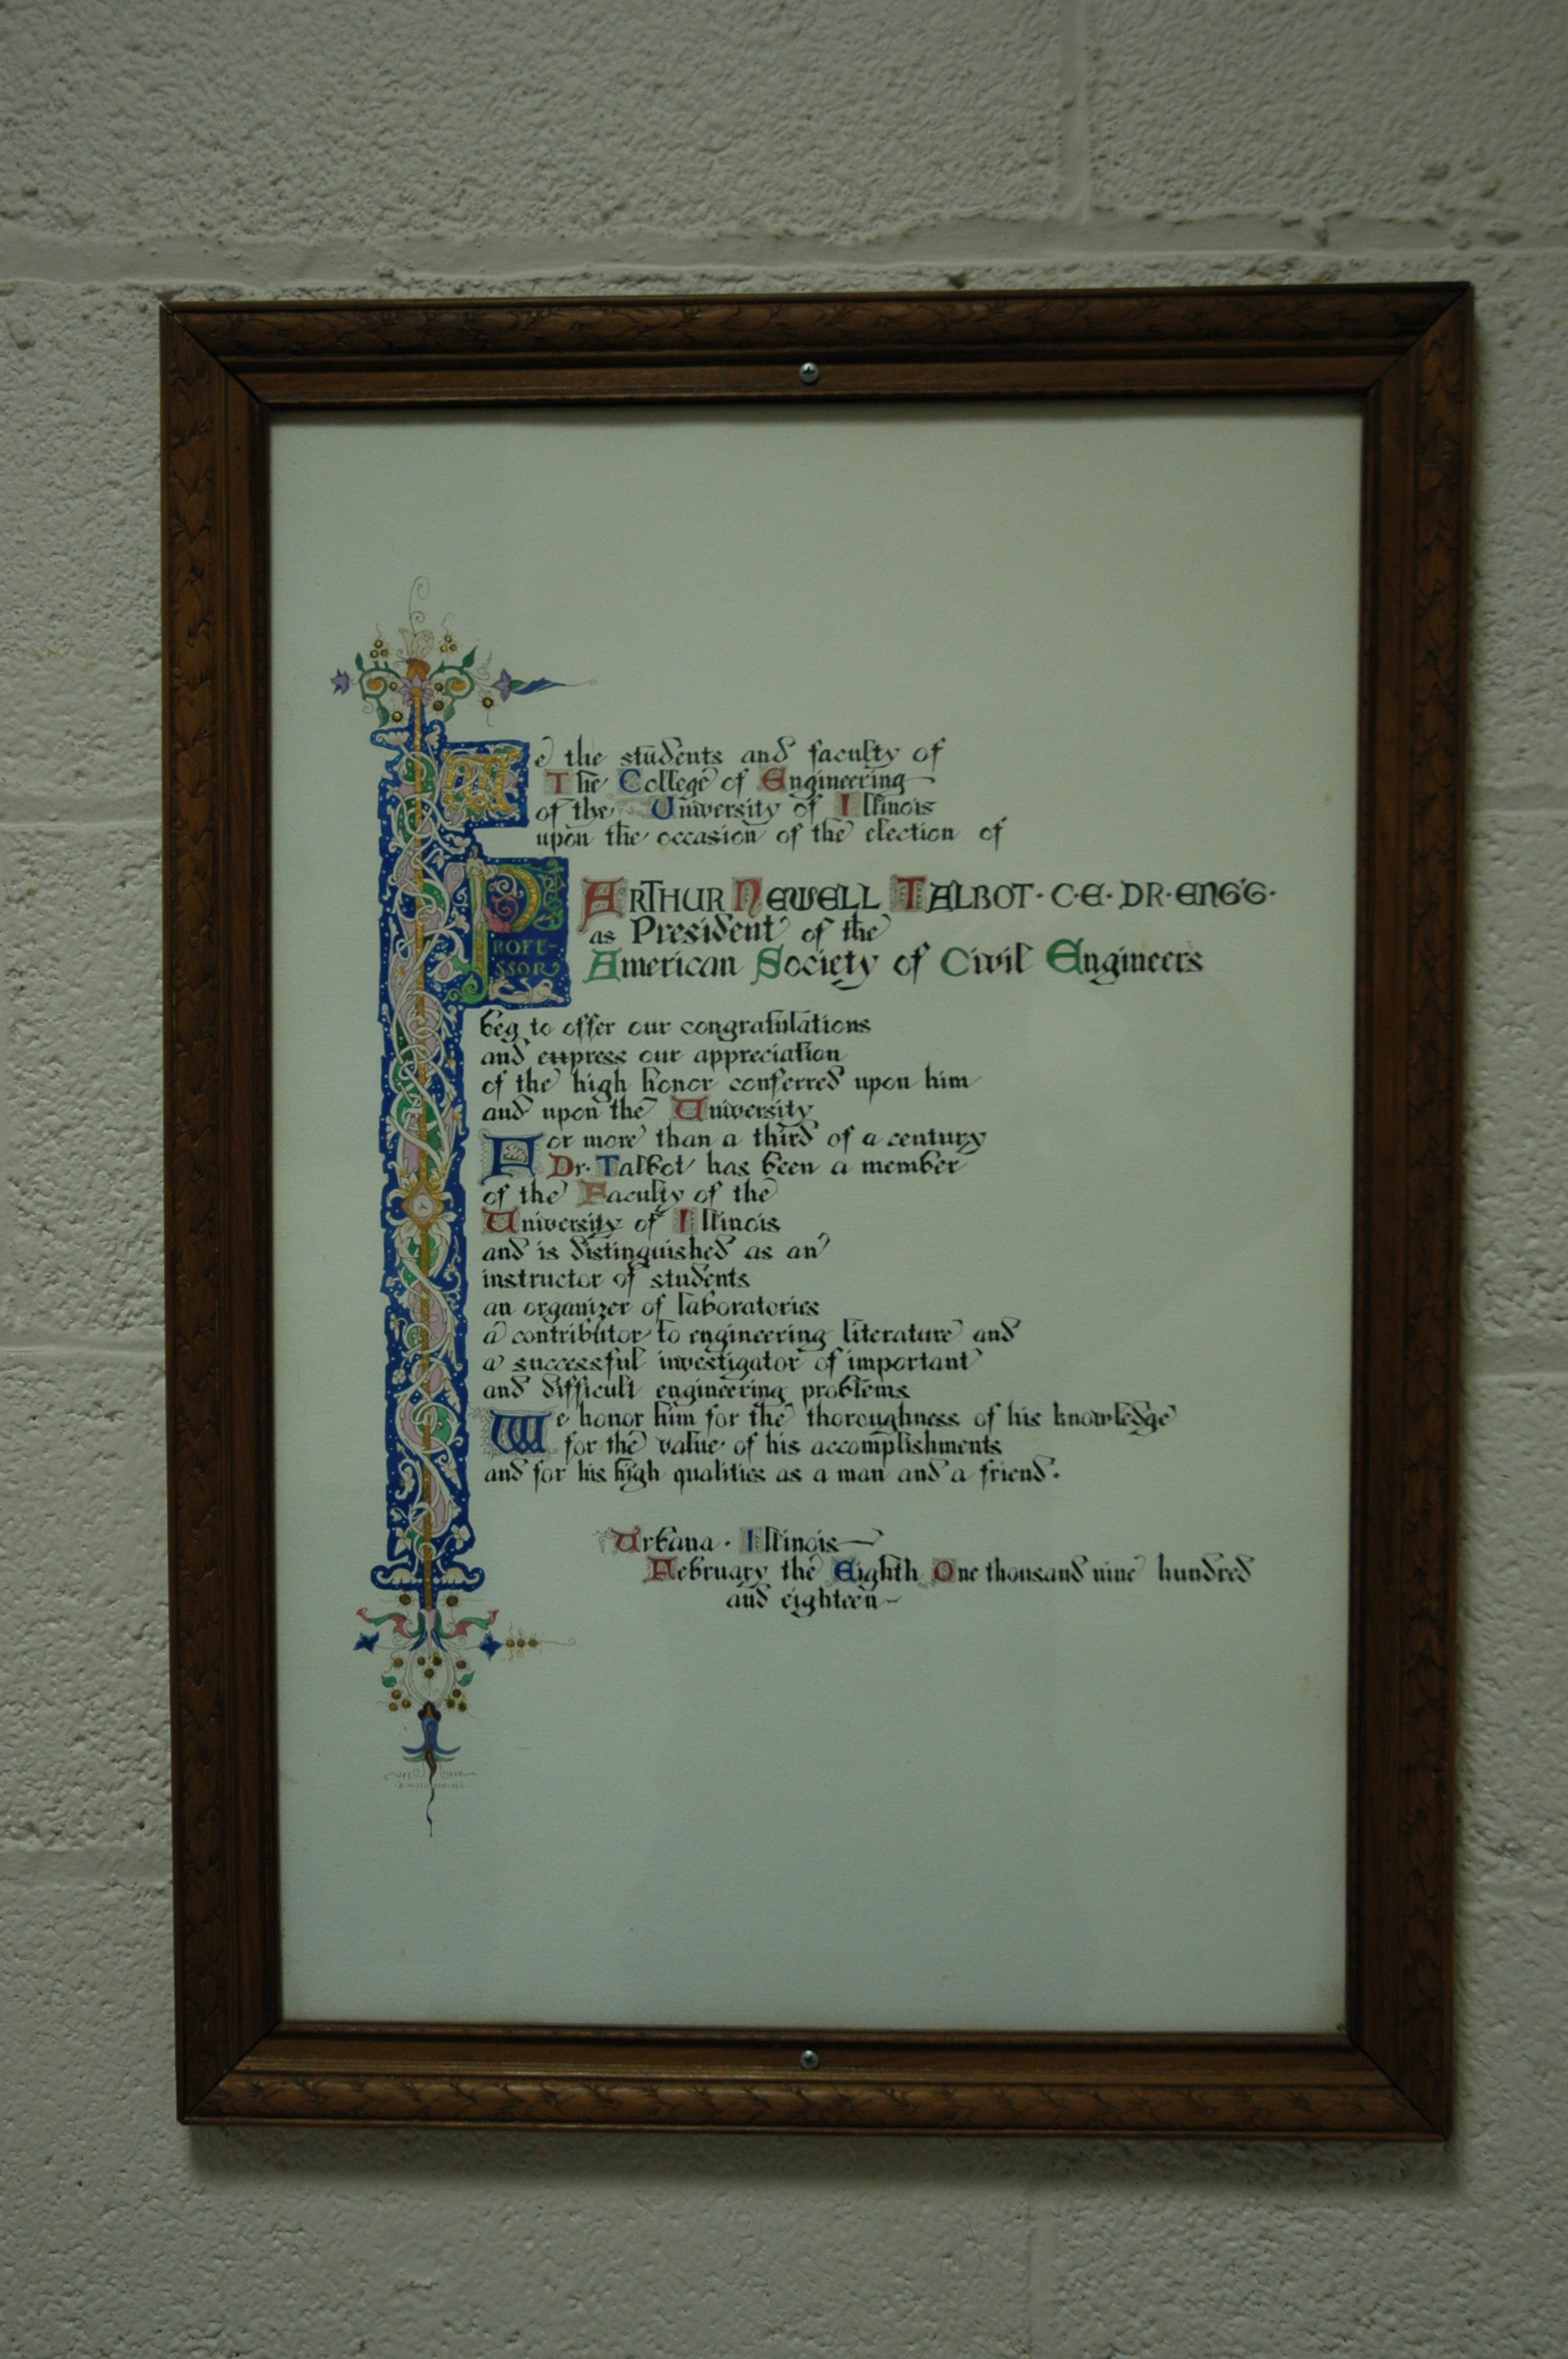 We the students and faculty of
The College of Engineering
of the University of Illinois
upon the occasion of the election of
PROFESSOR ARTHUR NEWELL TALBOT · C·E· DR·ENG'G·
as President of the
American Society of Civil Engineers
beg to offer our congratulations
and express our appreciation
of the high honor conferred upon him
and upon the University
For more than a third of a century
Dr. Talbot has been a member
of the Faculty of the
University of Illinois
and is distinguished as an
instructor of students
an organizer of laboratories
a contributor to engineering literature and
a successful investigator of important
and difficult engineering problems
We honor him for the thoroughness of his knowledge
for the value of his accomplishments
and for his high qualities as a man and a friend.
Urbana · Illinois
February the Eighth One thousand nine hundred
and eighteen